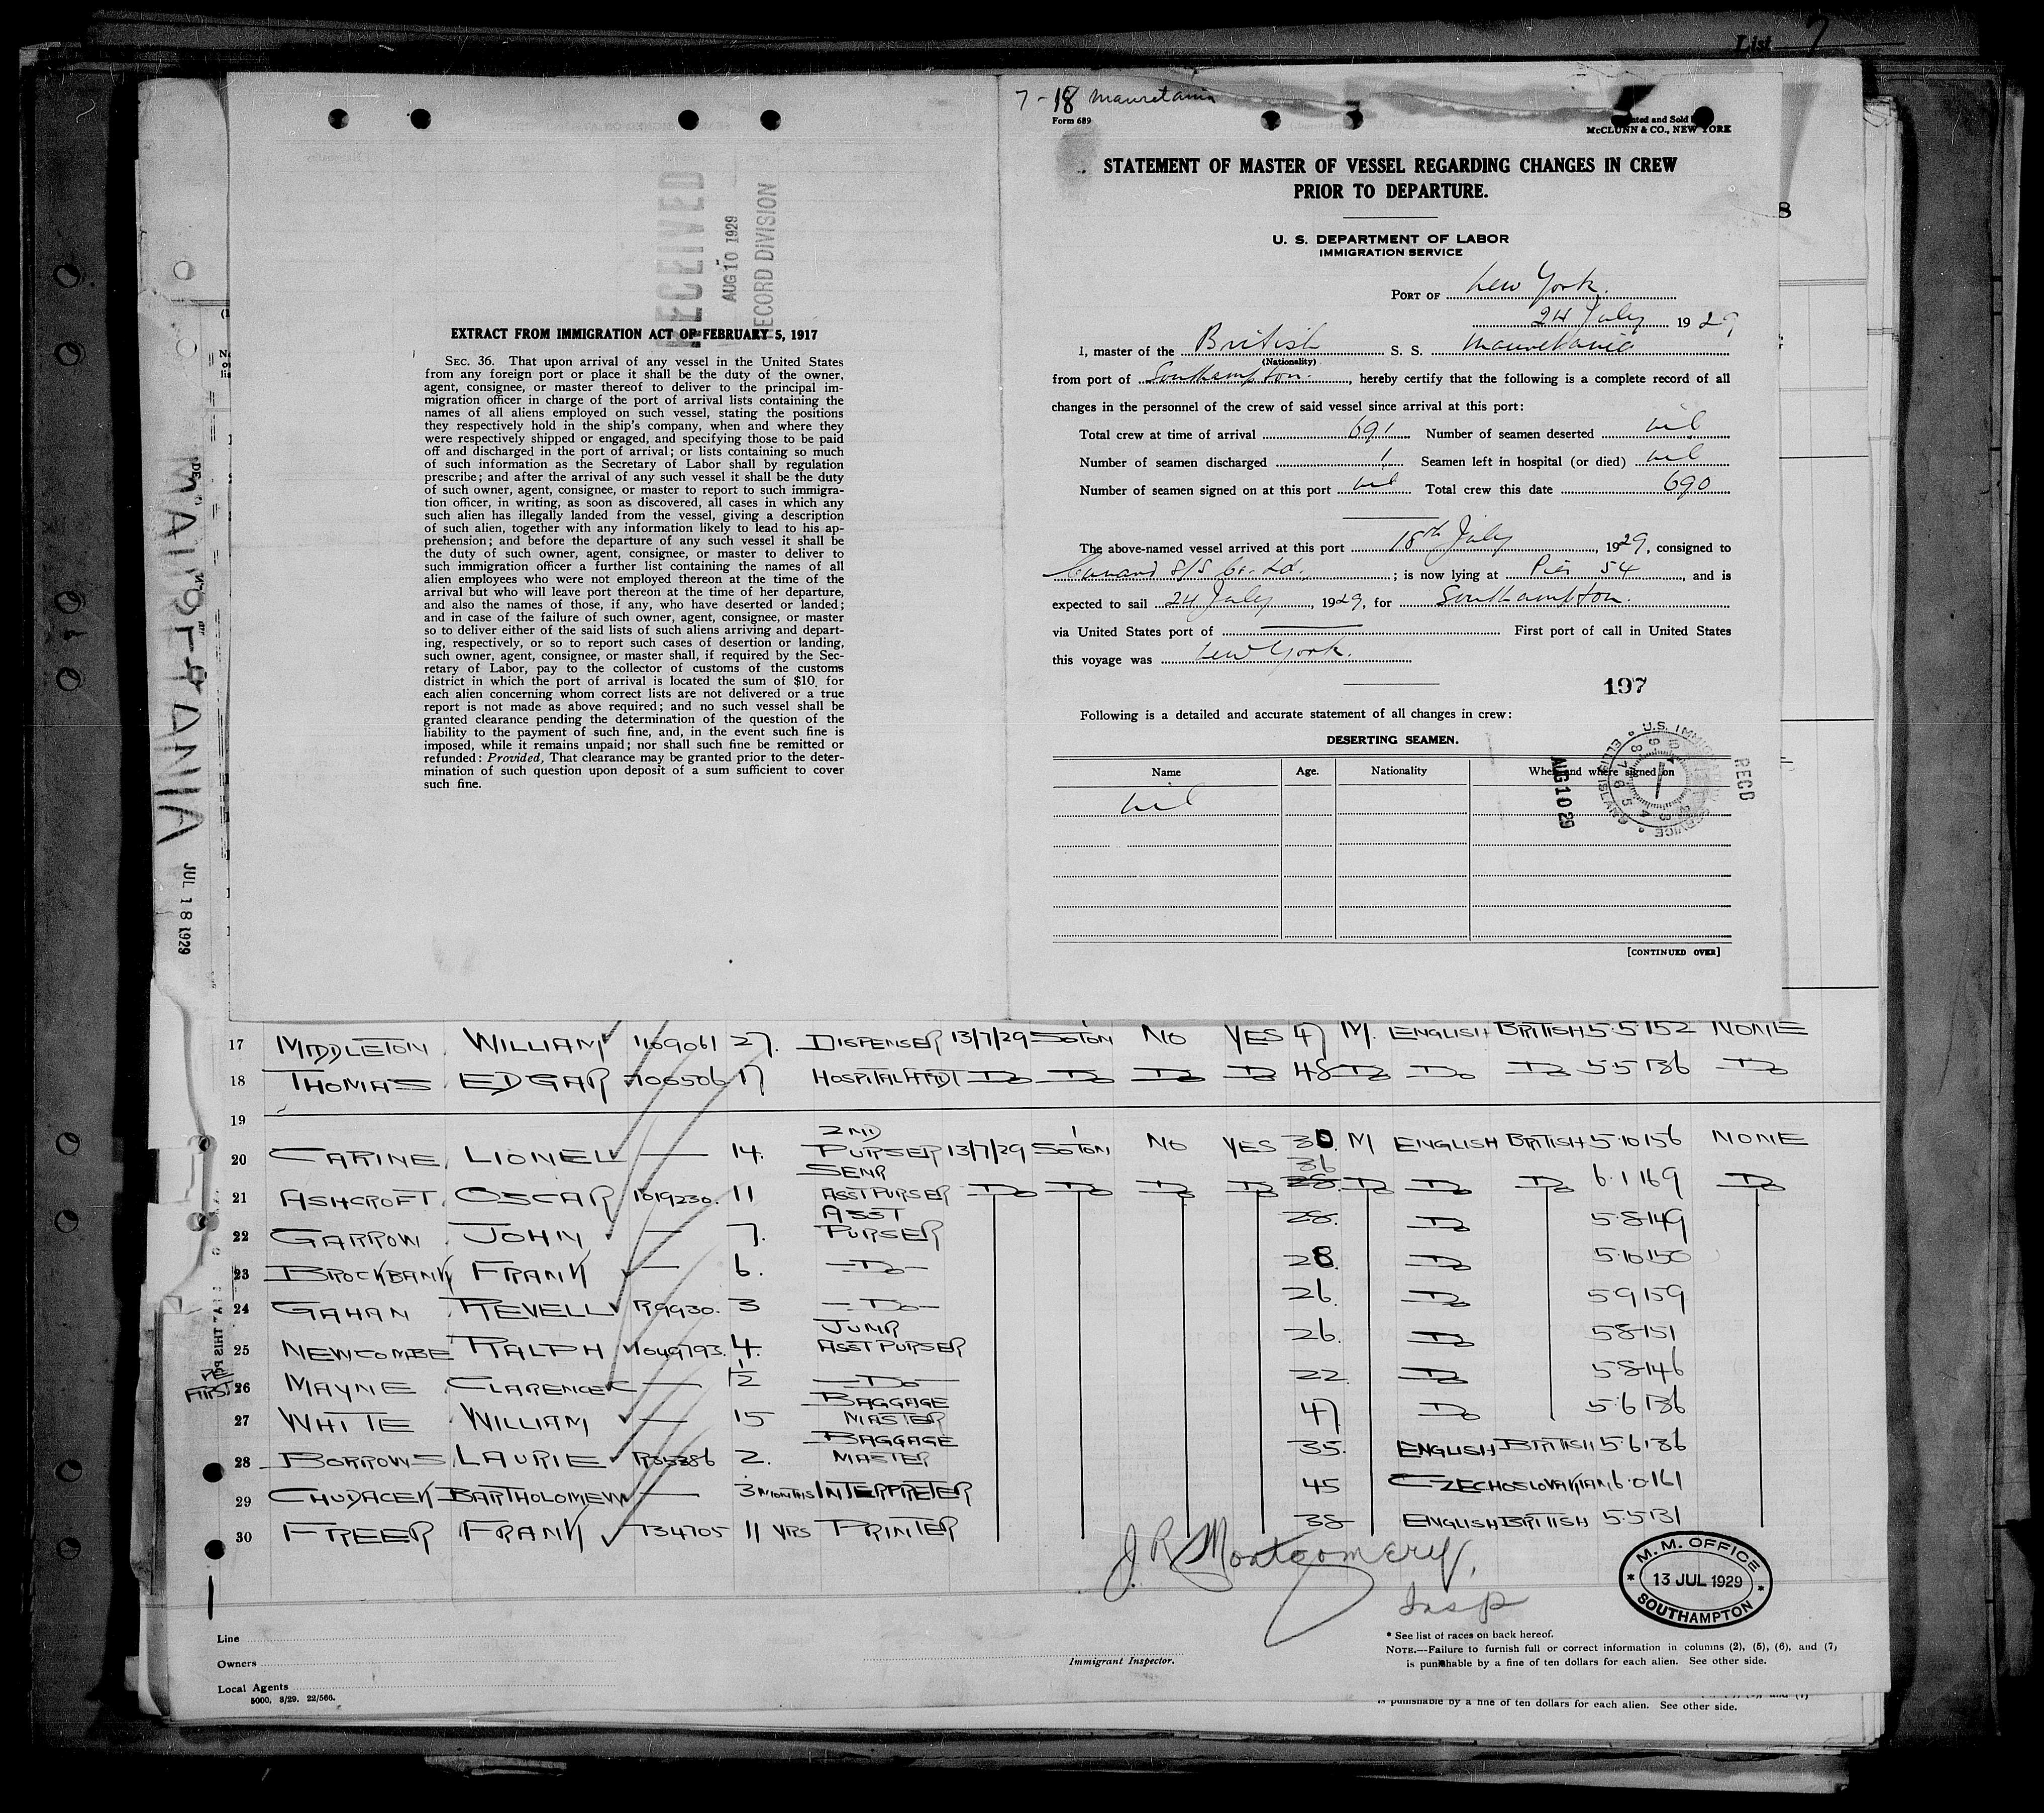 List 7
7-18 Mauretania
Form 689
McCLUNN & CO., NEW YORK
STATEMENT OF MASTER OF VESSEL REGARDING CHANGES IN CREW
PRIOR TO DEPARTURE.
U. S. DEPARTMENT OF LABOR
IMMIGRATION SERVICE
PORT OF New York.
24 July 1929
I, master of the British S. S. Mauretania
(Nationality)
from port of Southampton., hereby certify that the following is a complete record of all
changes in the personnel of the crew of said vessel since arrival at this port:
Total crew at time of arrival 691 Number of seamen deserted nil
Number of seamen discharged 1 Seamen left in hospital (or died) nil
Number of seamen signed on at this port nil Total crew this date 690
The above-named vessel arrived at this port 18th July, 1929, consigned to
Cunard S/S Co. Ld.; is now lying at Pier 54, and is
expected to sail 24 July, 1929, for Southampton.
via United States port of First port of call in United States
this voyage was New York.
197
Following is a detailed and accurate statement of all changes in crew:
DESERTING SEAMEN.
Name Age. Nationality When and where signed on
nil
[CONTINUED OVER]
RECD
AUG 10 29
U.S. IMMIG SERVICE ELLIS ISLAND
RECEIVED
AUG 10 1929
RECORD DIVISION
EXTRACT FROM IMMIGRATION ACT OF FEBRUARY 5, 1917
SEC. 36. That upon arrival of any vessel in the United States
from any foreign port or place it shall be the duty of the owner,
agent, consignee, or master thereof to deliver to the principal im-
migration officer in charge of the port of arrival lists containing the
names of all aliens employed on such vessel, stating the positions
they respectively hold in the ship's company, when and where they
were respectively shipped or engaged, and specifying those to be paid
off and discharged in the port of arrival; or lists containing so much
of such information as the Secretary of Labor shall by regulation
prescribe; and after the arrival of any such vessel it shall be the duty
of such owner, agent, consignee, or master to report to such immigra-
tion officer, in writing, as soon as discovered, all cases in which any
such alien has illegally landed from the vessel, giving a description
of such alien, together with any information likely to lead to his ap-
prehension; and before the departure of any such vessel it shall be
the duty of such owner, agent, consignee, or master to deliver to
such immigration officer a further list containing the names of all
alien employees who were not employed thereon at the time of the
arrival but who will leave port thereon at the time of her departure,
and also the names of those, if any, who have deserted or landed;
and in case of the failure of such owner, agent, consignee, or master
so to deliver either of the said lists of such aliens arriving and depart-
ing, respectively, or so to report such cases of desertion or landing,
such owner, agent, consignee, or master shall, if required by the Sec-
retary of Labor, pay to the collector of customs of the customs
district in which the port of arrival is located the sum of $10 for
each alien concerning whom correct lists are not delivered or a true
report is not made as above required; and no such vessel shall be
granted clearance pending the determination of the question of the
liability to the payment of such fine, and, in the event such fine is
imposed, while it remains unpaid; nor shall such fine be remitted or
refunded: Provided, That clearance may be granted prior to the deter-
mination of such question upon deposit of a sum sufficient to cover
such fine.
JUL 18 1929
17 MIDDLETON WILLIAM 1169061 27. DISPENSER 13/7/29 SOTON NO YES 47 M. ENGLISH BRITISH 5.5 152 NONE
18 THOMAS EDGAR 706506 17 HOSPITAL ATTDT DO DO DO DO 48 DO DO DO 5.5 136 DO
19
20 CARINE LIONEL — 14. 2ND PURSER 13/7/29 SOTON NO YES 30. M ENGLISH BRITISH 5.10 156 NONE
21 ASHCROFT OSCAR 1019230. 11 SENR ASST PURSER DO DO DO DO 36 DO DO DO 6.1 169 DO
22 GARROW JOHN — 7. ASST PURSER 28. DO 5.8 149
23 BROCKBANK FRANK — 6. —DO— 28. DO 5.10 150
24 GAHAN REVELL R9930. 3 —DO— 26. DO 5.9 159
25 NEWCOMBE RALPH 1049793. 4. JUNR ASST PURSER 26. DO 5.8 151
26 MAYNE CLARENCE — 1/2 —DO— 22 DO 5.8 146
27 WHITE WILLIAM — 15 BAGGAGE MASTER 47 DO 5.6 136
28 BORROWS LAURIE R35386 2. BAGGAGE MASTER 35. ENGLISH BRITISH 5.6 136
29 CHUDACEK BARTHOLOMEW — 3 MONTHS INTERPRETER 45 CZECHOSLOVAKIAN 6.0 161
30 FREER FRANK 734705 11 YRS PRINTER 38 ENGLISH BRITISH 5.5 131
J R Montgomery,
Insp
M. M. OFFICE
13 JUL 1929
SOUTHAMPTON
Line
Owners
Local Agents
5000. 3/29. 22/566.
Immigrant Inspector.
* See list of races on back hereof.
NOTE.—Failure to furnish full or correct information in columns (2), (5), (6), and (7)
is punishable by a fine of ten dollars for each alien. See other side.
is punishable by a fine of ten dollars for each alien. See other side.